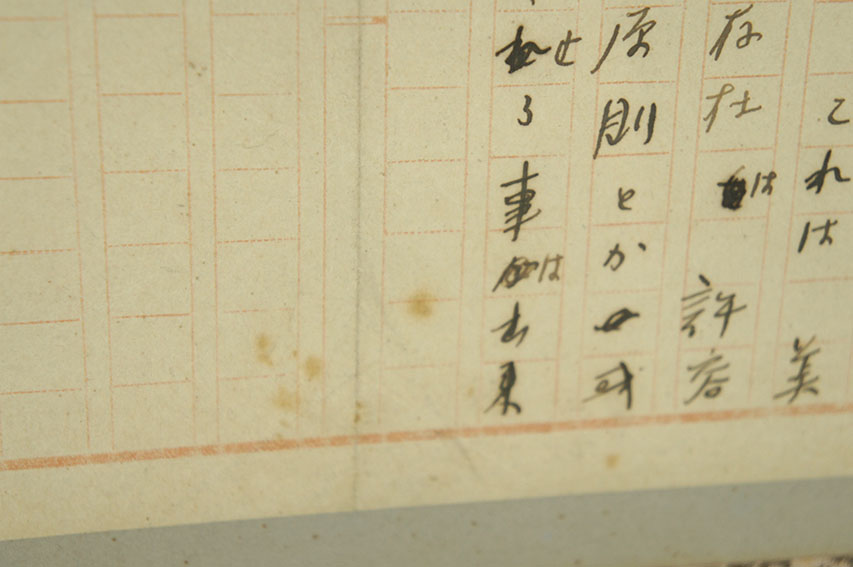 これは 美
存在は 許容
原則とか 或
せる事は出来